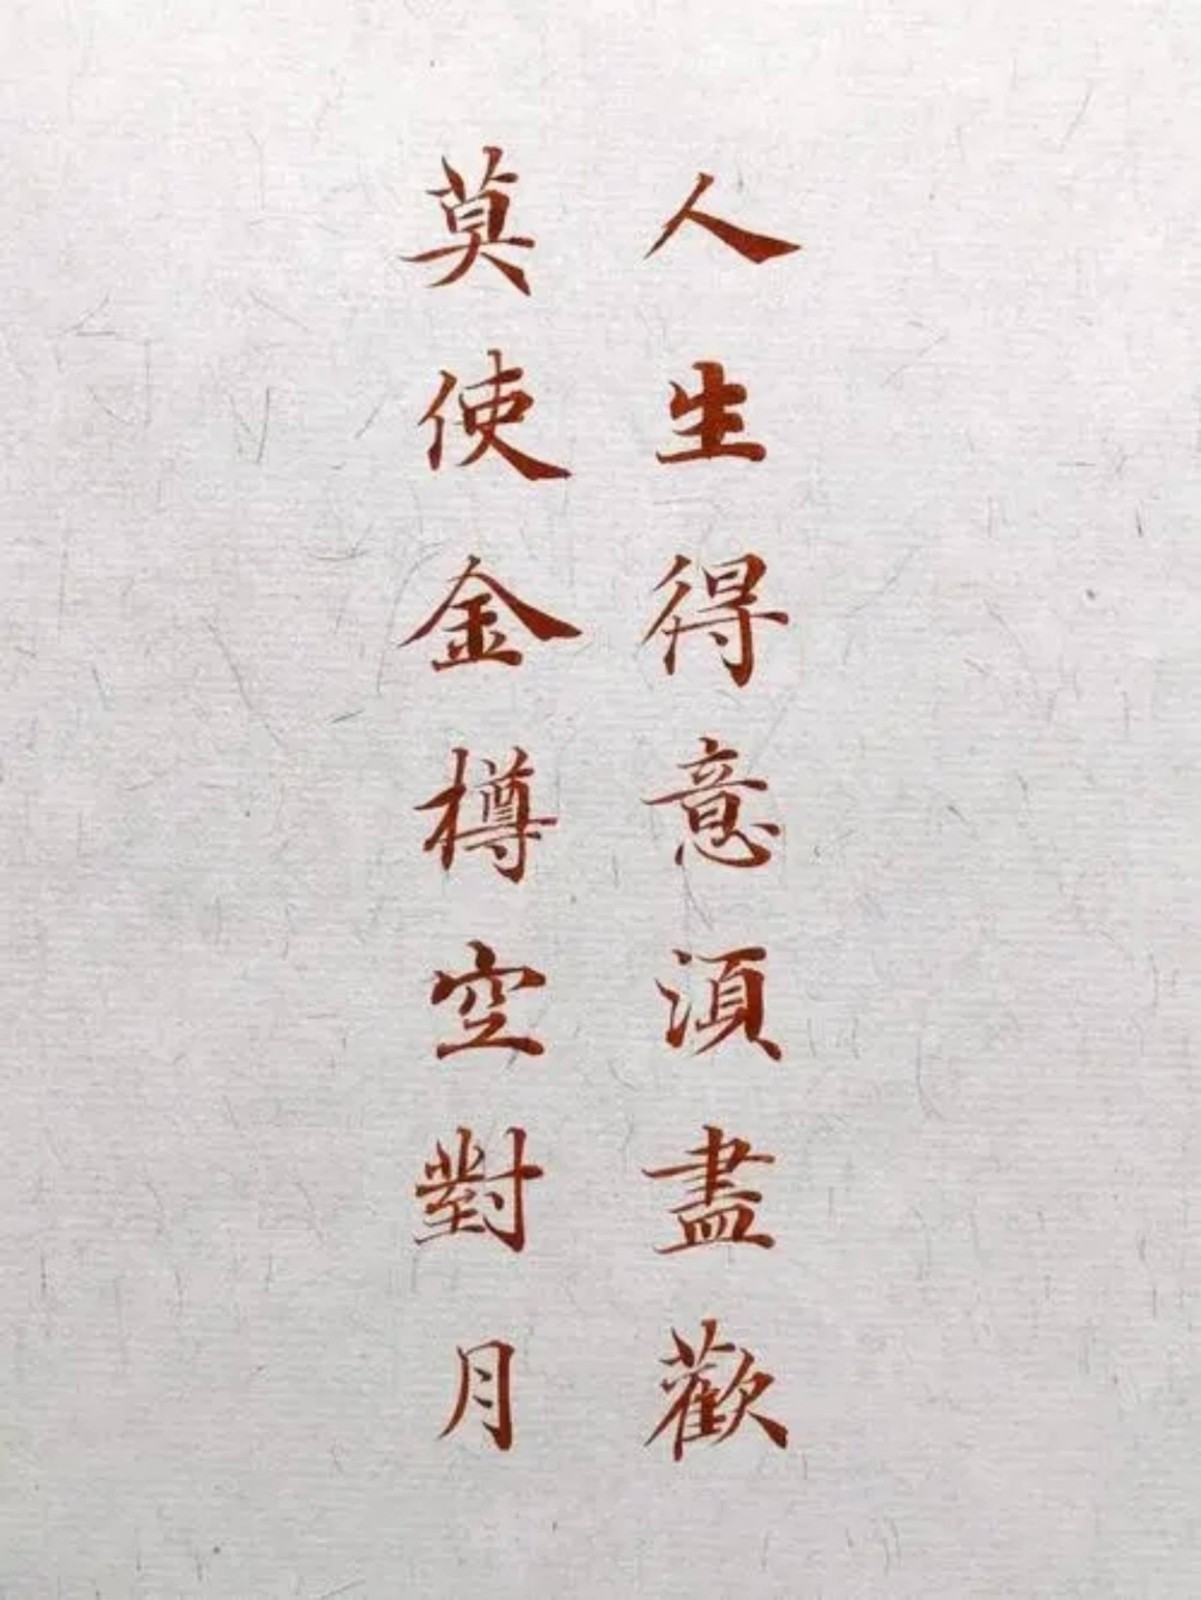 人生得意湏盡歡
莫使金樽空對月